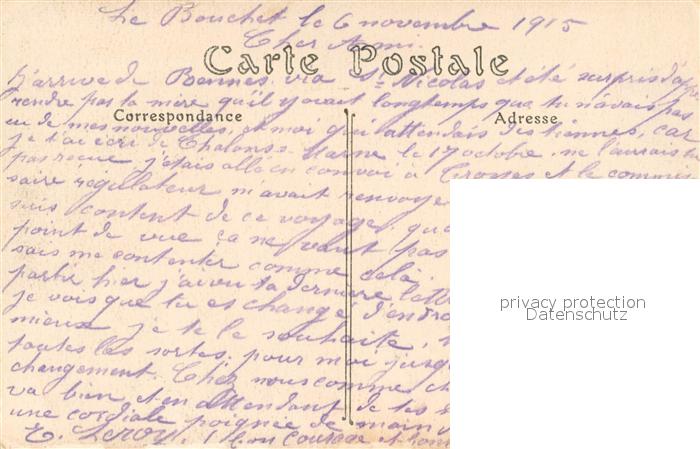 Le Bouchet le 6 novembre 1915
Cher Ami.
Carte Postale
J'arrive de Rennes via St Nicolas et été surpris d'ap
rendre par ta mère qu'il y avait longtemps que tu n'avais pas
Correspondance
Adresse
eu de mes nouvelles, et moi qui attendais des tiennes, car
je t'ai écri de Chalons s Marne le 17 octobre, ne l'aurais tu
pas reçue, j'étais allé en convoi à et le commis
saire régulateur m'avait renvoyé
suis content de ce voyage, qu
point de vue ça ne vaut pas
sais me contenter comme cela.
partir hier j'ai vu ta dernière lettr
je vois que tu es changé d'endro
mieux je te le souhaite,
toutes les sortes, pour moi jusq
changement. Chez nous comme ch
va bien et en attendant de tes
une cordiale poignée de main
E. Leroy. Bon courage et
privacy protection
Datenschutz